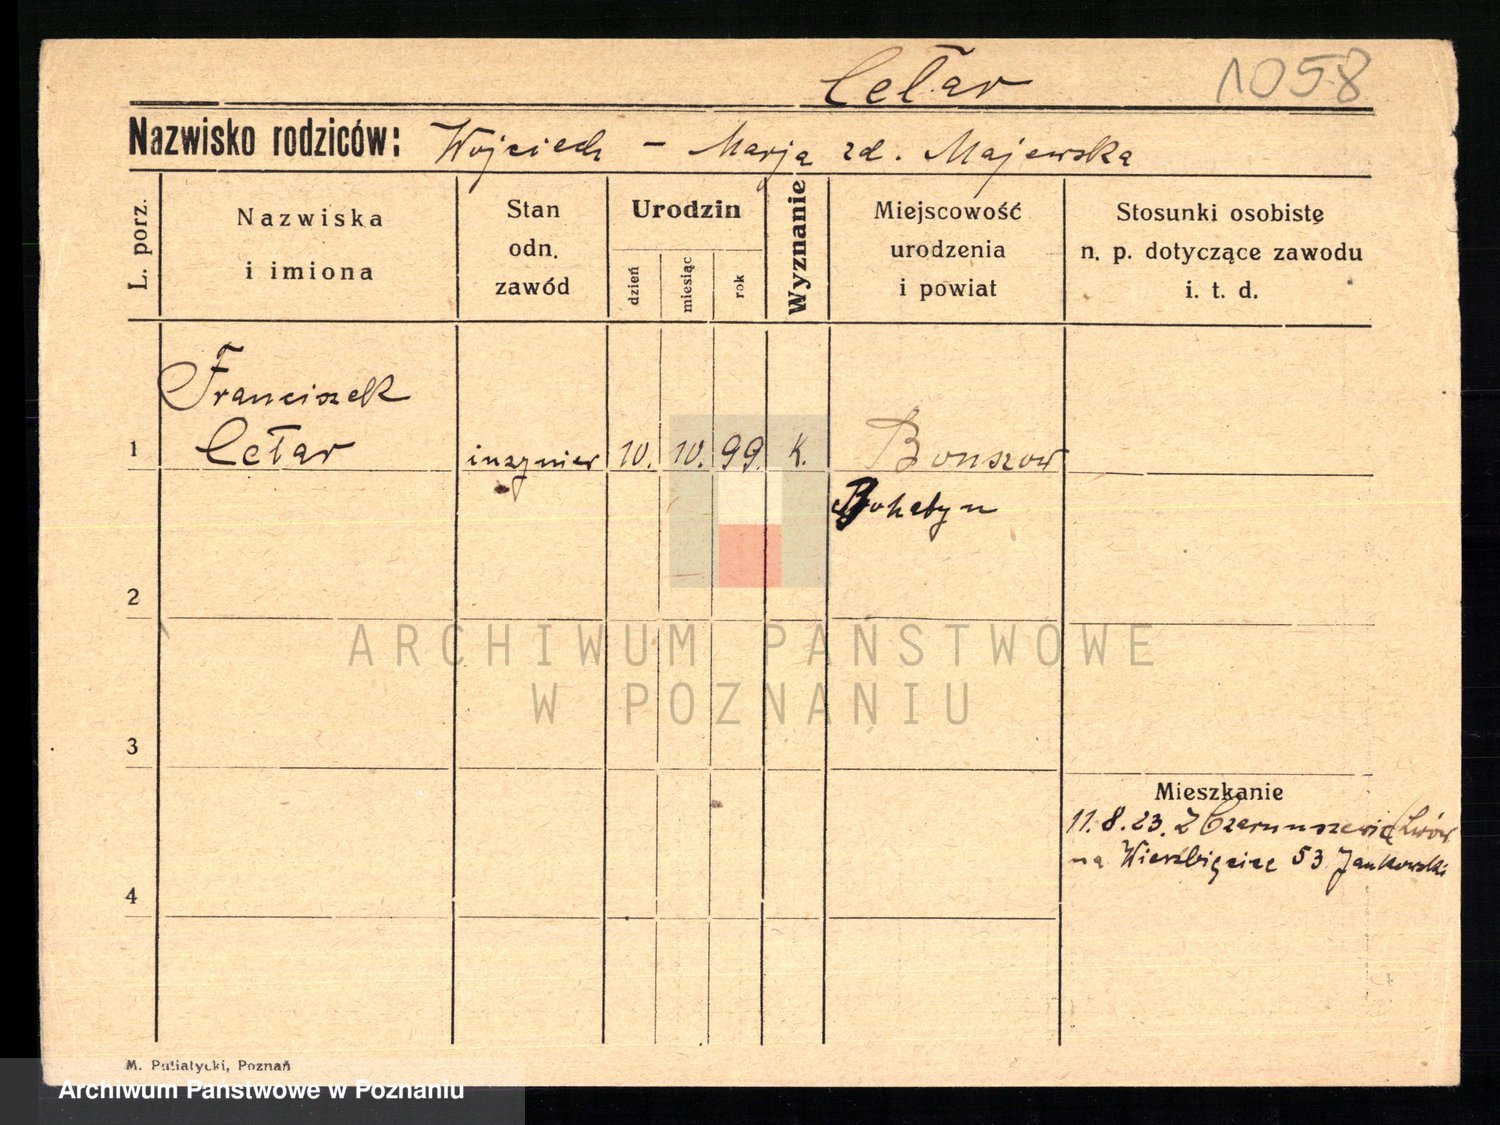 Cełar
1058
Nazwisko rodziców: Wojciech - Marja zd. Majewska
L. porz.
Nazwiska
i imiona
Stan
odn.
zawód
Urodzin
dzień
miesiąc
rok
Wyznanie
Miejscowość
urodzenia
i powiat
Stosunki osobistę
n. p. dotyczące zawodu
i. t. d.
Franciszek
1 Cełar inżynier 10. 10. 99. K. Bouszow
Rohatyn
2
ARCHIWUM PAŃSTWOWE
W POZNANIU
3
Mieszkanie
11. 8. 23. Z Lwów
na Wierzbięcice 53 Jankowski
4
M. Putiatycki, Poznań
Archiwum Państwowe w Poznaniu